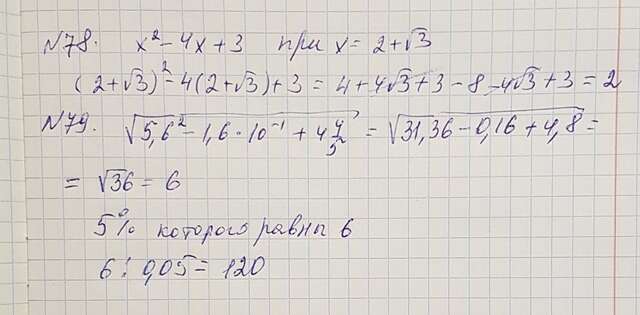 N78. x² - 4x + 3 при x = 2+√3
(2+√3)² - 4(2+√3) + 3 = 4 + 4√3 + 3 - 8 - 4√3 + 3 = 2
N79. √(5,6² - 1,6 · 10⁻¹ + 4 4/5) = √(31,36 - 0,16 + 4,8) =
= √36 = 6
5% которого равны 6
6 : 0,05 = 120